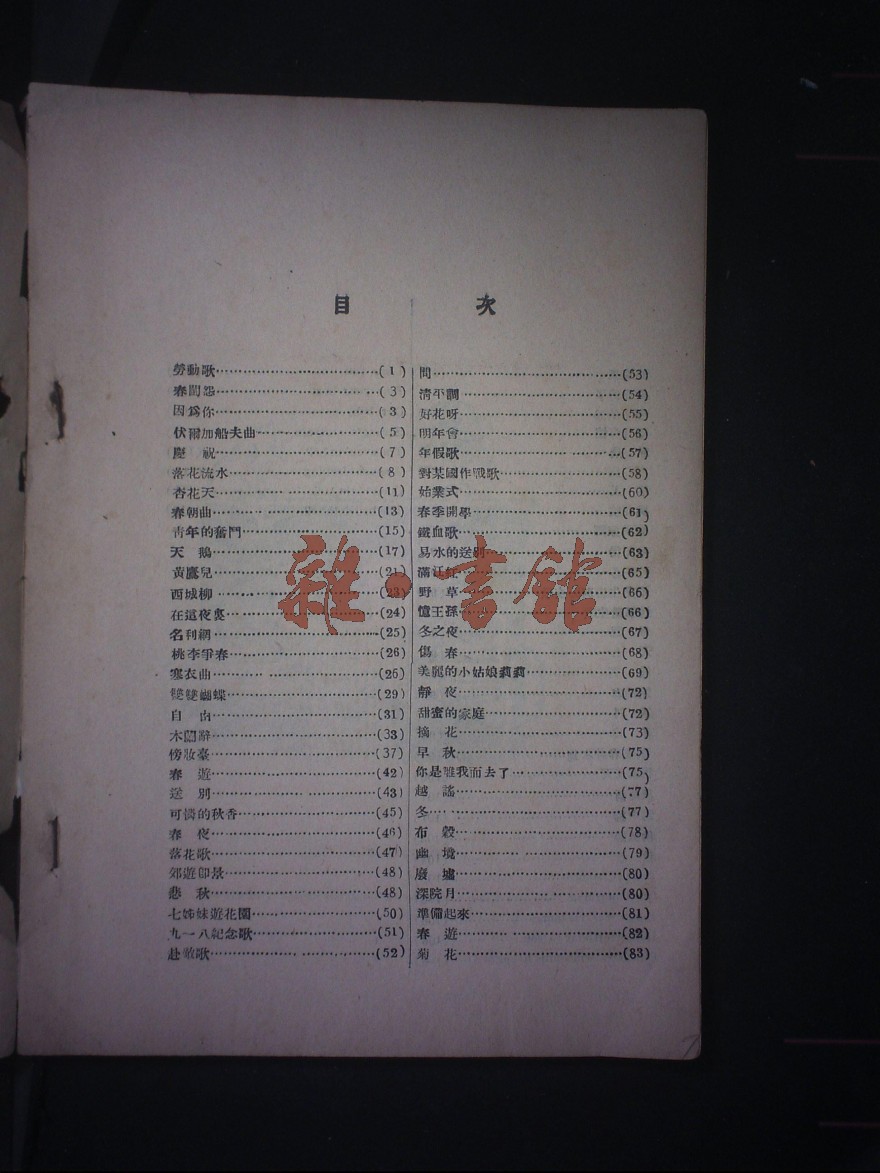 目 次
勞動歌(1)
春閨怨(3)
因爲你(3)
伏爾加船夫曲(5)
慶 祝(7)
落花流水(8)
杏花天(11)
春朝曲(13)
靑年的奮鬥(15)
天 鵝(17)
黃鷹兒(21)
西城柳(23)
在這夜裏(24)
名利網(25)
桃李爭春(26)
寒衣曲(26)
雙雙蝴蝶(29)
自 由(31)
木蘭辭(33)
傍妝臺(37)
春 遊(42)
送 別(43)
可憐的秋香(45)
春 夜(46)
落花歌(47)
郊遊卽景(48)
悲 秋(48)
七姊妹遊花園(50)
九一八紀念歌(51)
赴敵歌(52)
問(53)
淸平調(54)
好花呀(55)
明年會(56)
年假歌(57)
對某國作戰歌(58)
始業式(60)
春季開學(61)
鐵血歌(62)
易水的送別(63)
滿江紅(65)
野 草(66)
憶王孫(66)
冬之夜(67)
傷 春(68)
美麗的小姑娘莉莉(69)
靜 夜(72)
甜蜜的家庭(72)
摘 花(73)
早 秋(75)
你是離我而去了(75)
越 謠(77)
冬(77)
布 穀(78)
幽 境(79)
廢 墟(80)
深院月(80)
準備起來(81)
春 遊(82)
菊 花(83)
雜·書館